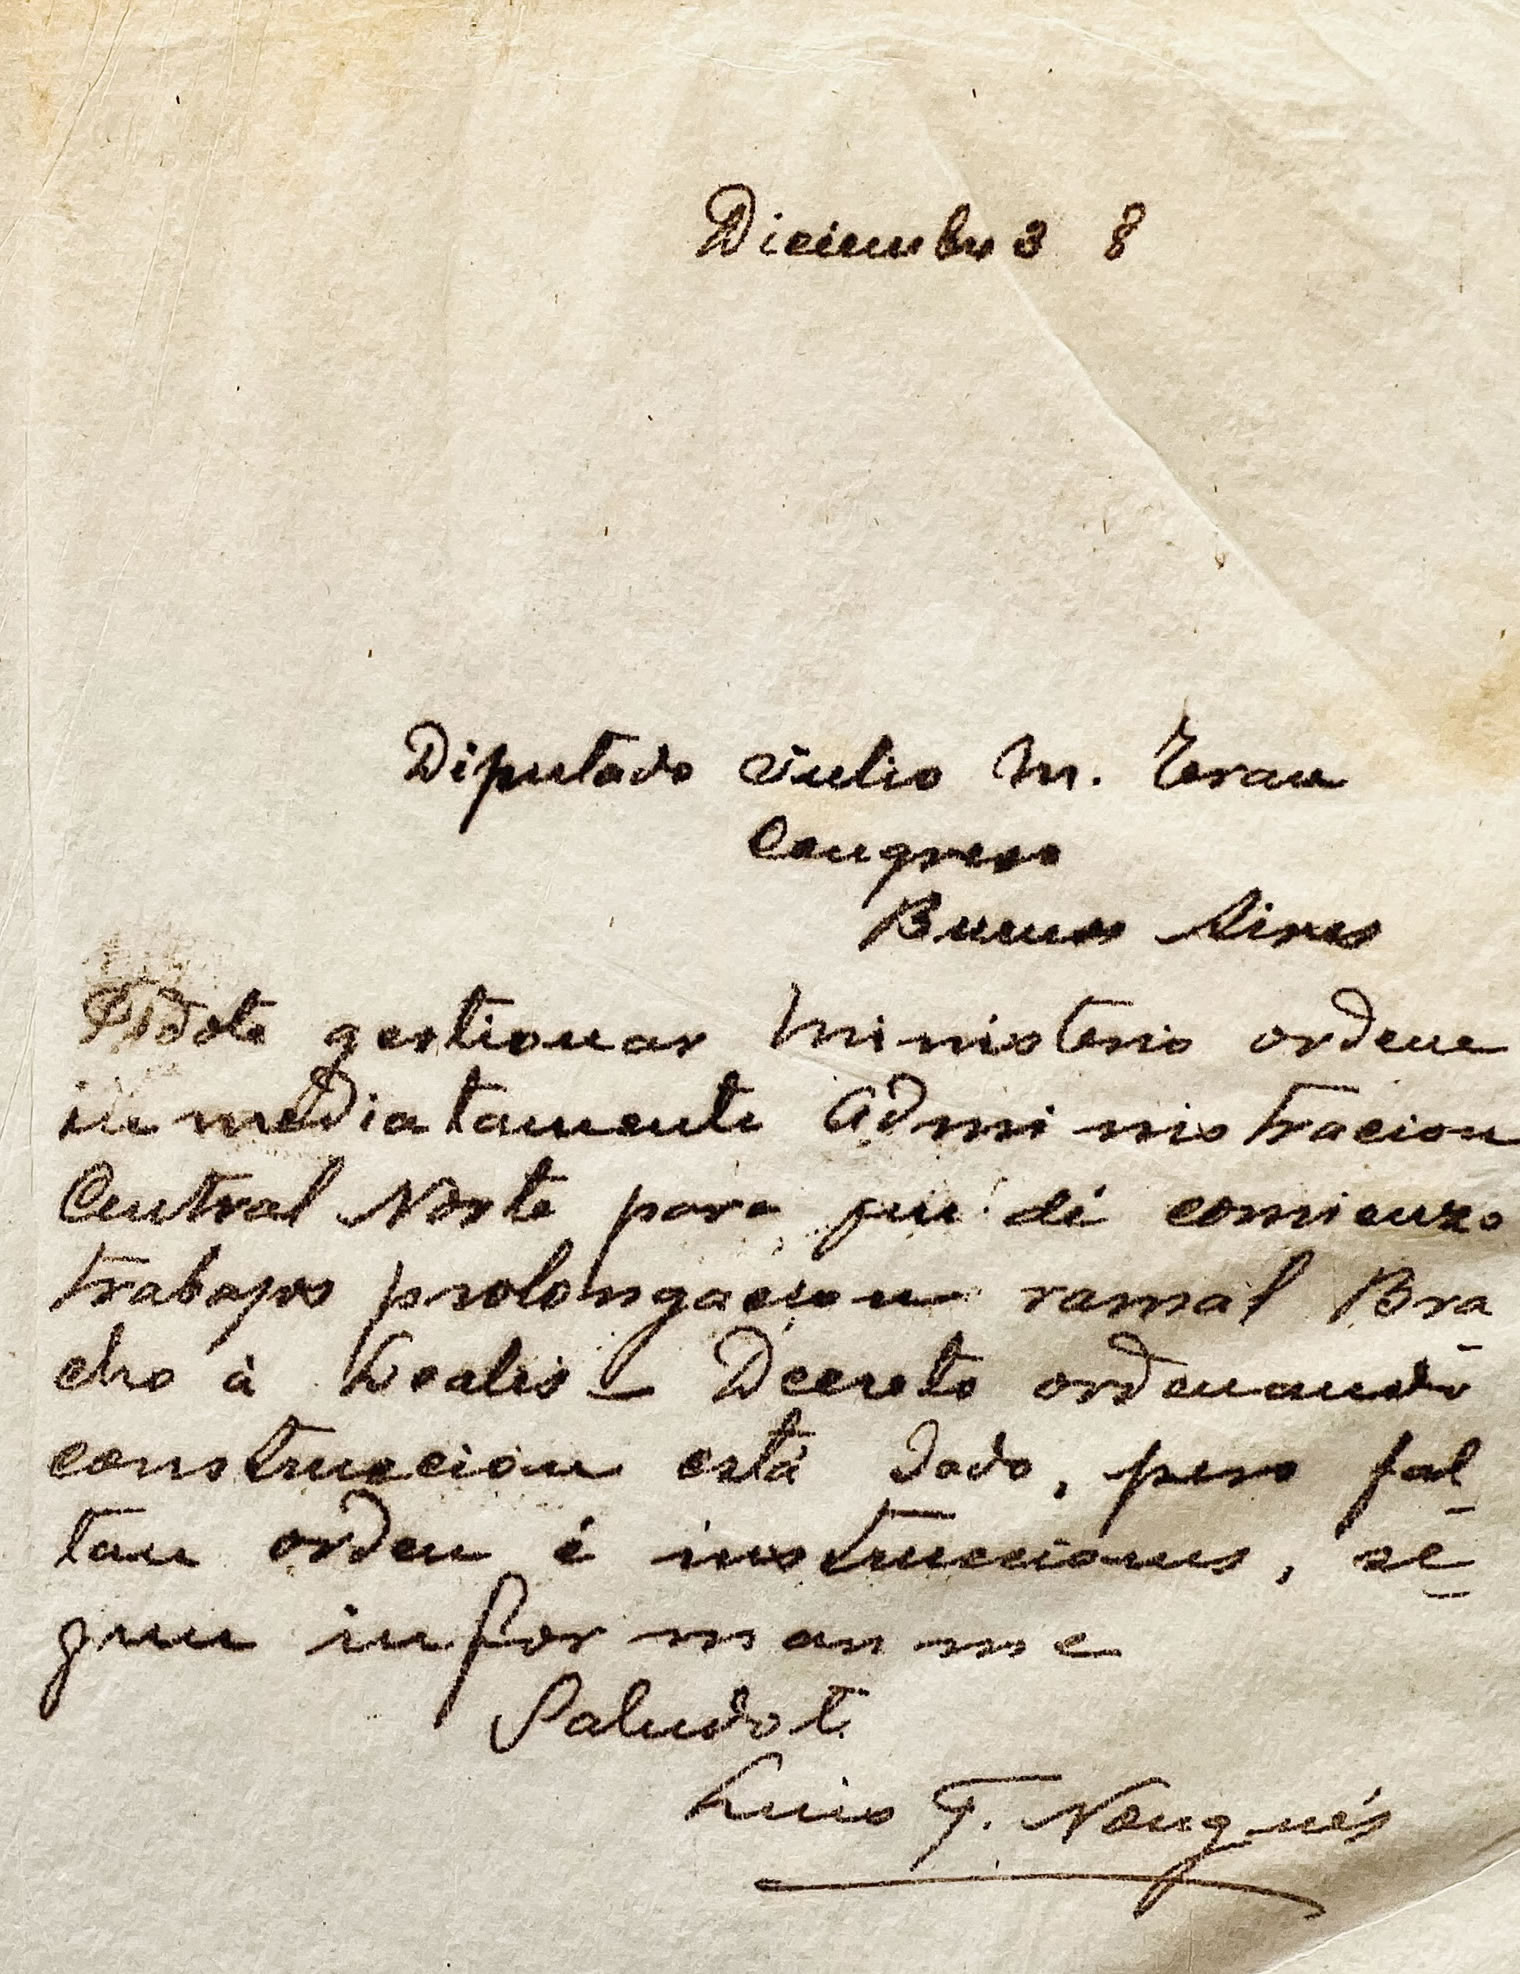 Diciembre 3 8
Diputado Julio M. Teran
Congreso
Buenos Aires
Pidote gestionar Ministerio ordene
inmediatamente Administracion
Central Norte para que dé comienzo
trabajos prolongacion ramal Bra
cho à Leales – Decreto ordenando
construccion está dado, pero fal_
tan orden é instrucciones, se_
gun informanme
Saludot.
Luis F. Nougués